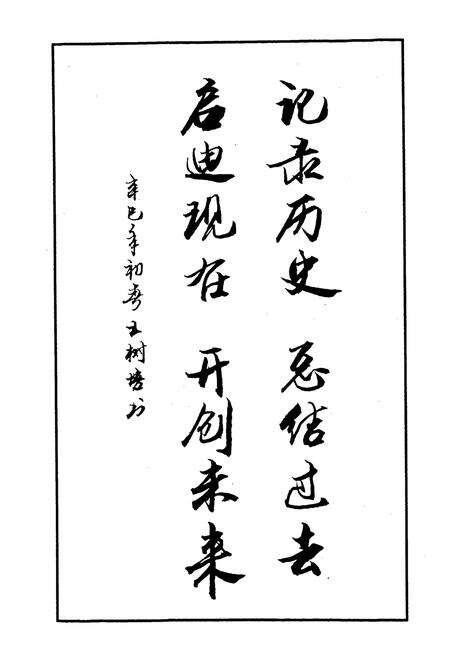 记录历史 总结过去
启迪现在 开创未来
辛巳年初春 王树培书